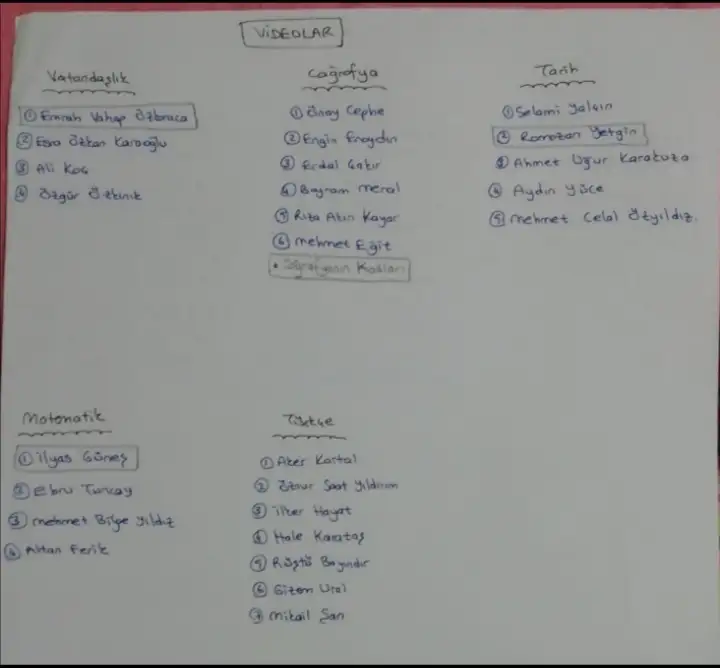 VİDEOLAR
Vatandaşlık
① Emrah Vahap Özkaraca
② Esra Özkan Karaoğlu
③ Ali Koç
④ Özgür Özkınık
Coğrafya
① Önay Cephe
② Engin Eraydın
③ Erdal Çakır
④ Bayram Meral
⑤ Rıza Akın Kayar
⑥ Mehmet Eğit
• Coğrafyanın Kodları
Tarih
① Selami Yalçın
② Ramazan Yetgin
③ Ahmet Uğur Karakuza
④ Aydın Yüce
⑤ Mehmet Celal Özyıldız
Matematik
① İlyas Güneş
② Ebru Tuncay
③ Mehmet Bilge Yıldız
④ Altan Ferik
Türkçe
① Aker Kartal
② Öznur Saat Yıldırım
③ İlker Hayat
④ Hale Karataş
⑤ Rüştü Bayındır
⑥ Gizem Ural
⑦ Mikail Şan